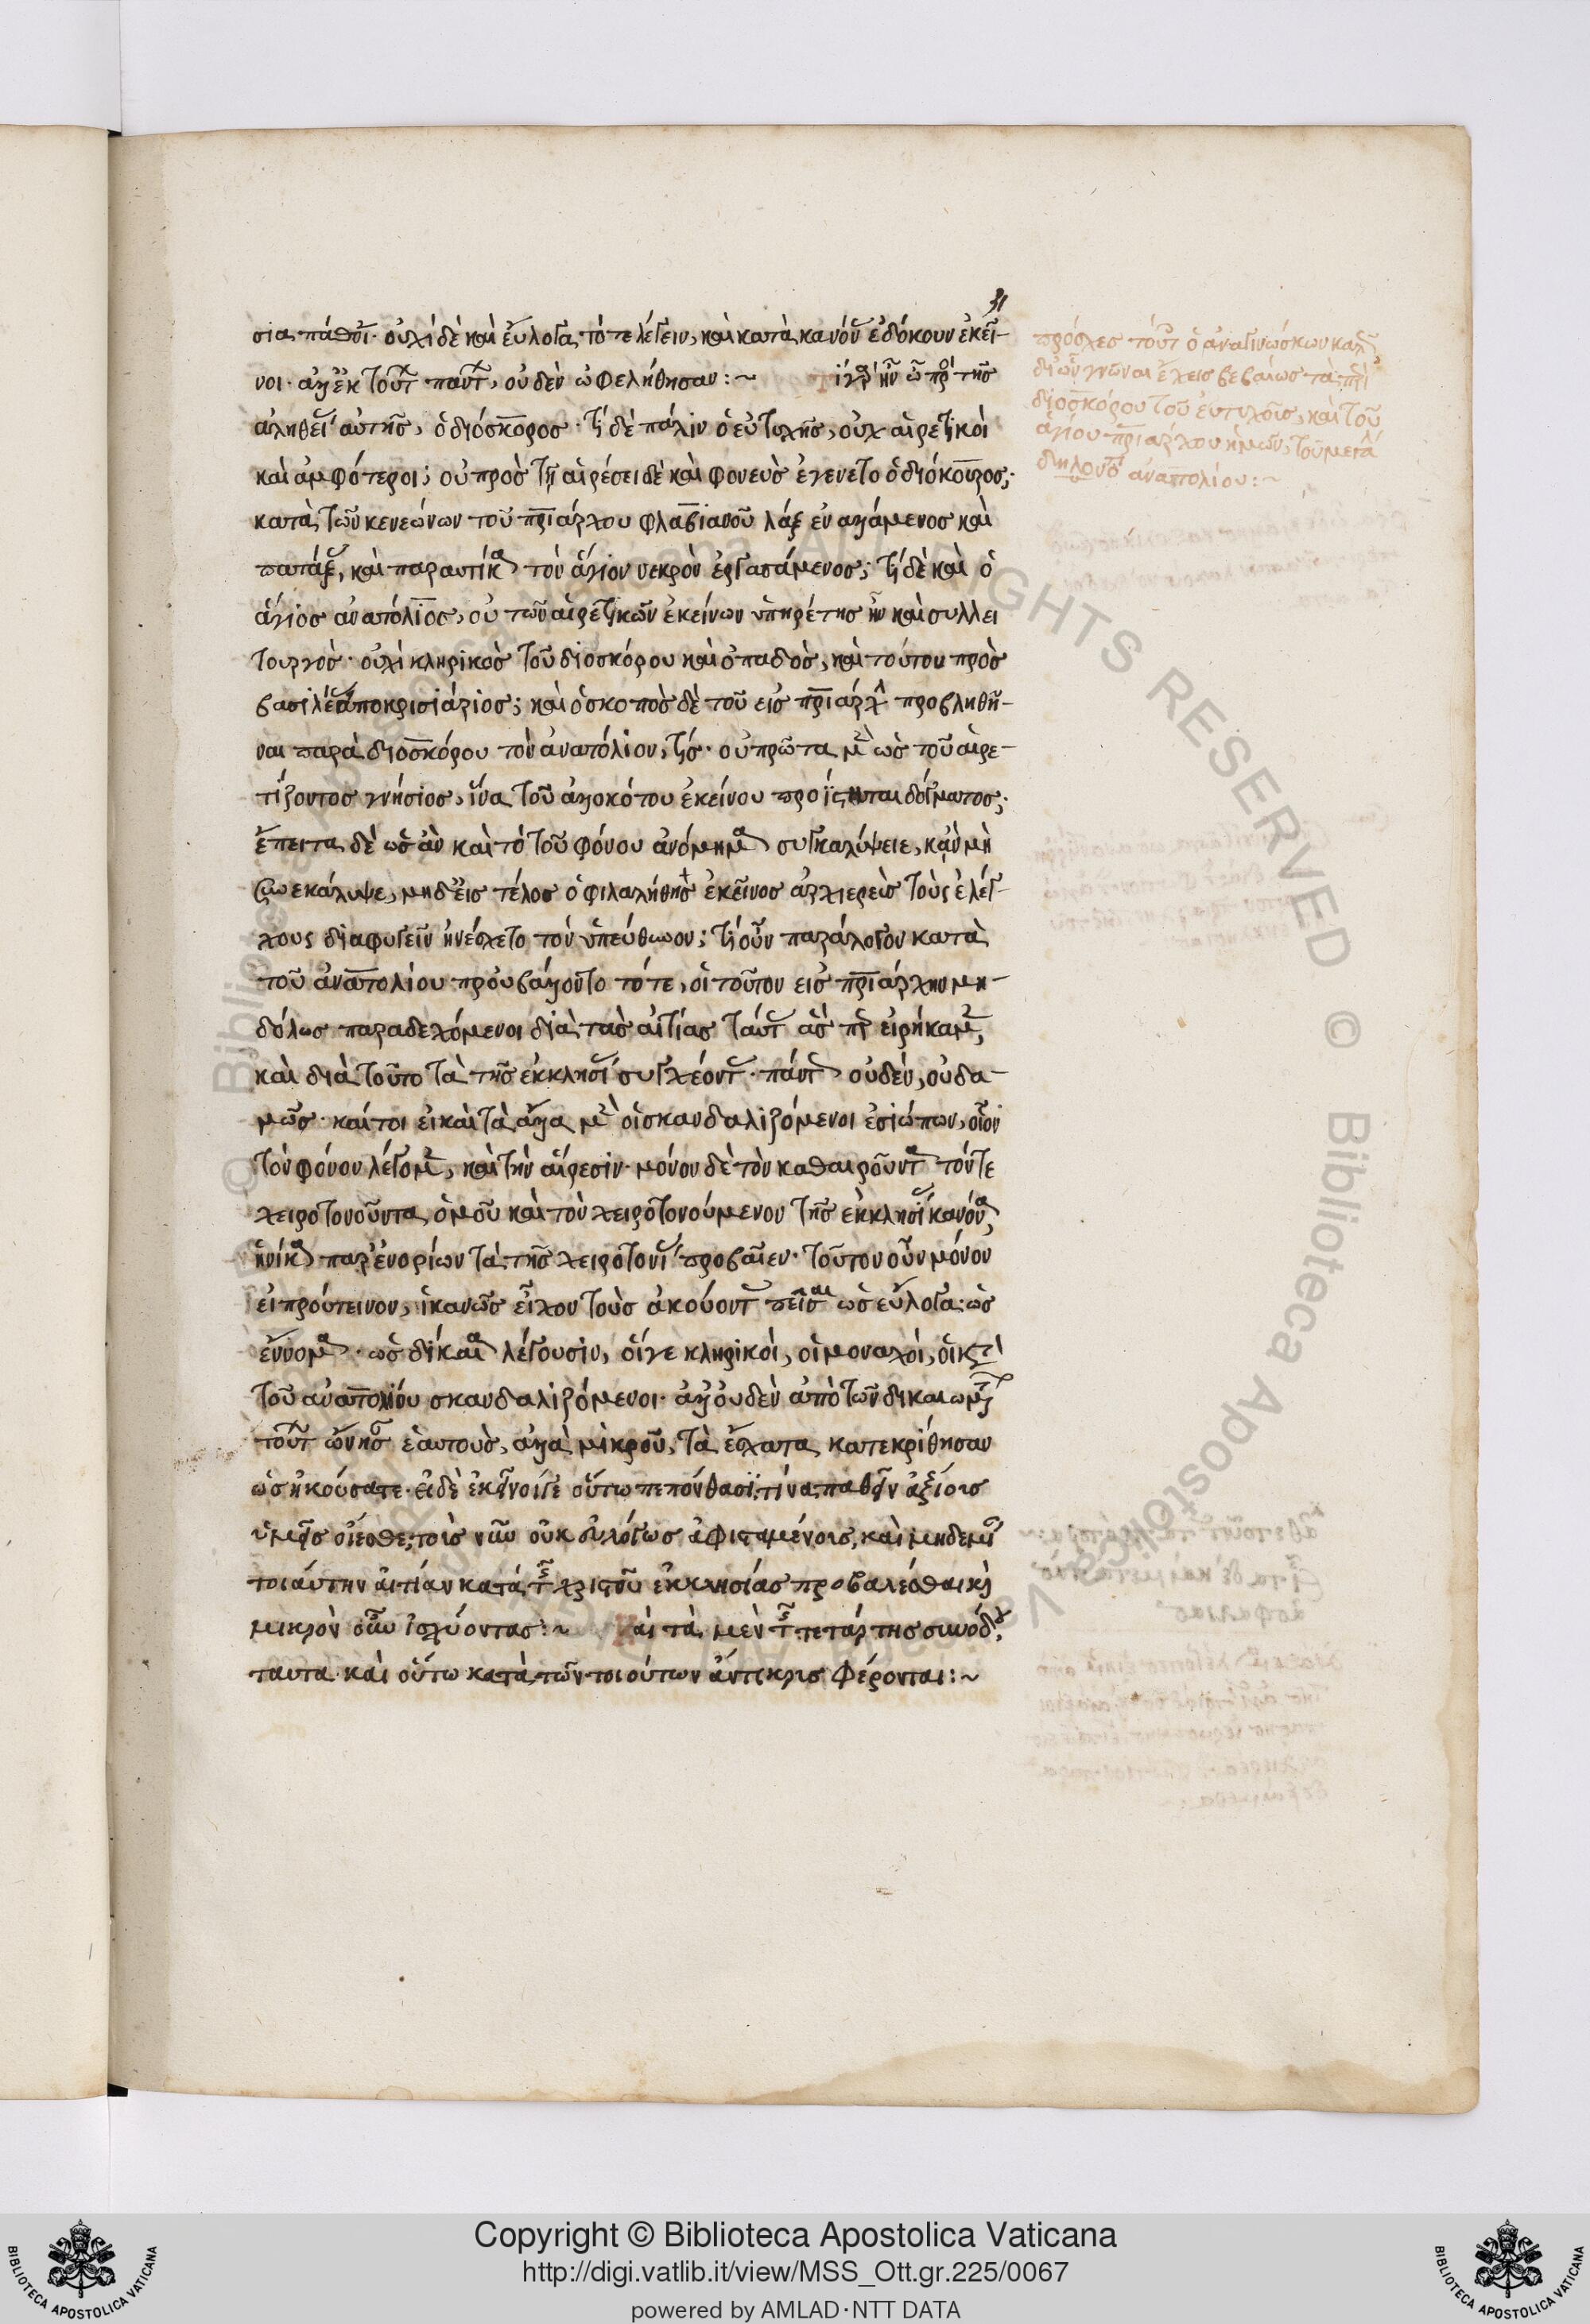 31
σια πάθοι· οὐχὶ δὲ καὶ εὔλογα τότε λέγειν, καὶ κατὰ κανόν ἐδόκουν ἐκεῖ-
νοι· ἀλλ ἐκ τούτ πάντ, οὐδὲν ὠφελήθησαν :~ Τί γὰρ ἦν ὦ πρὸ τῆς
ἀληθεί αὐτῆς, ὁ διόσκορος· τί δὲ πάλιν ὁ εὐτυχῆς, οὐχ αἱρετικοὶ
καὶ ἀμφότεροι; οὐ πρὸς τῇ αἱρέσει δὲ καὶ φονεὺς ἐγένετο ὁ διόσκορος;
κατὰ τῶν κενεώνων τοῦ πριάρχου φλαβιανοῦ λάξ ἐναλάμενος καὶ
πατάξ, καὶ παραυτίκα τὸν ἅγιον νεκρὸν ἐργασάμενος; τί δὲ καὶ ὁ
ἅγιος ἀνατόλιος, οὐ τῶν αἱρετικῶν ἐκείνων ὑπηρέτης ἦν καὶ συλλει
τουργὸς· οὐχὶ κληρικὸς τοῦ διοσκόρου καὶ ὀπαδὸς, καὶ τούτου πρὸς
βασιλέα ἀποκρισιάριος; καὶ ὁ σκοπὸς δὲ τοῦ εἰς πριάρχ προβληθῆ-
ναι παρὰ διοσκόρου τὸν ἀνατόλιον, τίς· οὐ πρῶτα μὲν ὡς τοῦ αἱρε-
τίζοντος γνήσιος, ἵνα τοῦ ἀλλοκότου ἐκείνου προΐστηται δόγματος;
ἔπειτα δὲ ὡς ἂν καὶ τὸ τοῦ φόνου ἀνόμημα συγκαλύψειε, κἂν μὴ
συνεκάλυψε, μηδ εἰς τέλος ὁ φιλαλήθης ἐκεῖνος ἀρχιερεὺς τοὺς ἐλέγ-
χους διαφυγεῖν ἠνέσχετο τὸν ὑπεύθυνον; τί οὖν παράλογον κατὰ
τοῦ ἀνατολίου προυβάλλοντο τότε, οἱ τοῦτον εἰς πριάρχην μη-
δόλως παραδεχόμενοι διὰ τὰς αἰτίας ταύτ ἃς εἰρήκαμ,
καὶ διὰ τοῦτο τὰ τῆς ἐκκλησί συγχέοντ· πάντ οὐδὲν, οὐδα-
μῶς· καίτοι εἰ καὶ τὰ ἄλλα μὲν οἱ σκανδαλιζόμενοι ἐσιώπων, οἷον
τὸν φόνον λέγομ, καὶ τὴν αἵρεσιν· μόνον δὲ τὸν καθαιροῦντα τόν τε
χειροτονοῦντα, ὁμοῦ καὶ τὸν χειροτονούμενον τῆς ἐκκλησί κανόνα,
ἡνίκα παρ ἐνορίων τὰ τῆς χειροτονί προβαῖεν· τοῦτον οὖν μόνον
εἰ πρότεινον, ἱκανῶς εἶχον τοὺς ἀκούοντ πεῖσαι ὡς εὔλογα· ὡς
ἔννομα· ὡς δίκαια λέγουσιν, οἵγε κληρικοὶ, οἱ μοναχοὶ, οἱ κατὰ
τοῦ ἀνατολίου σκανδαλιζόμενοι· ἀλλ οὐδὲν ἀπὸ τῶν δικαιωμ
τούτ ὤνησ ἑαυτοὺς, ἀλλὰ μικροῦ, τὰ ἔσχατα κατεκρίθησαν
ὡς ἠκούσατε· εἰ δὲ ἐκεῖνοί γε οὕτω πεπόνθασι, τίνα παθεῖν ἀξίοις
ὑμεῖς οἴεσθε, τοῖς νῦν οὐκ εὐλόγως ἀφισταμένοις, καὶ μηδεμί
τοιαύτην αἰτίαν κατὰ τῆς χριστοῦ ἐκκλησίας προβαλέσθαι κἂν
μικρὸν οὖν ἰσχύοντας :~ Καὶ τὰ μὲν τῆς τετάρτης συνόδου,
ταυτα· καὶ οὕτω κατὰ τῶν τοιούτων ἄντικρυς φέρονται :~
πρόσχες τούτ ὁ ἀναγινώσκων καλ
δι ὧν γνῶναι ἔχεις βεβαίως τὰ περὶ
διοσκόρου τοῦ εὐτυχοῦς, καὶ τοῦ
ἁγίου πριάρχου ἡμῶν, τοῦ μετὰ
δηλονότι ἀνατολίου :~
Copyright © Biblioteca Apostolica Vaticana
http://digi.vatlib.it/view/MSS_Ott.gr.225/0067
powered by AMLAD·NTT DATA